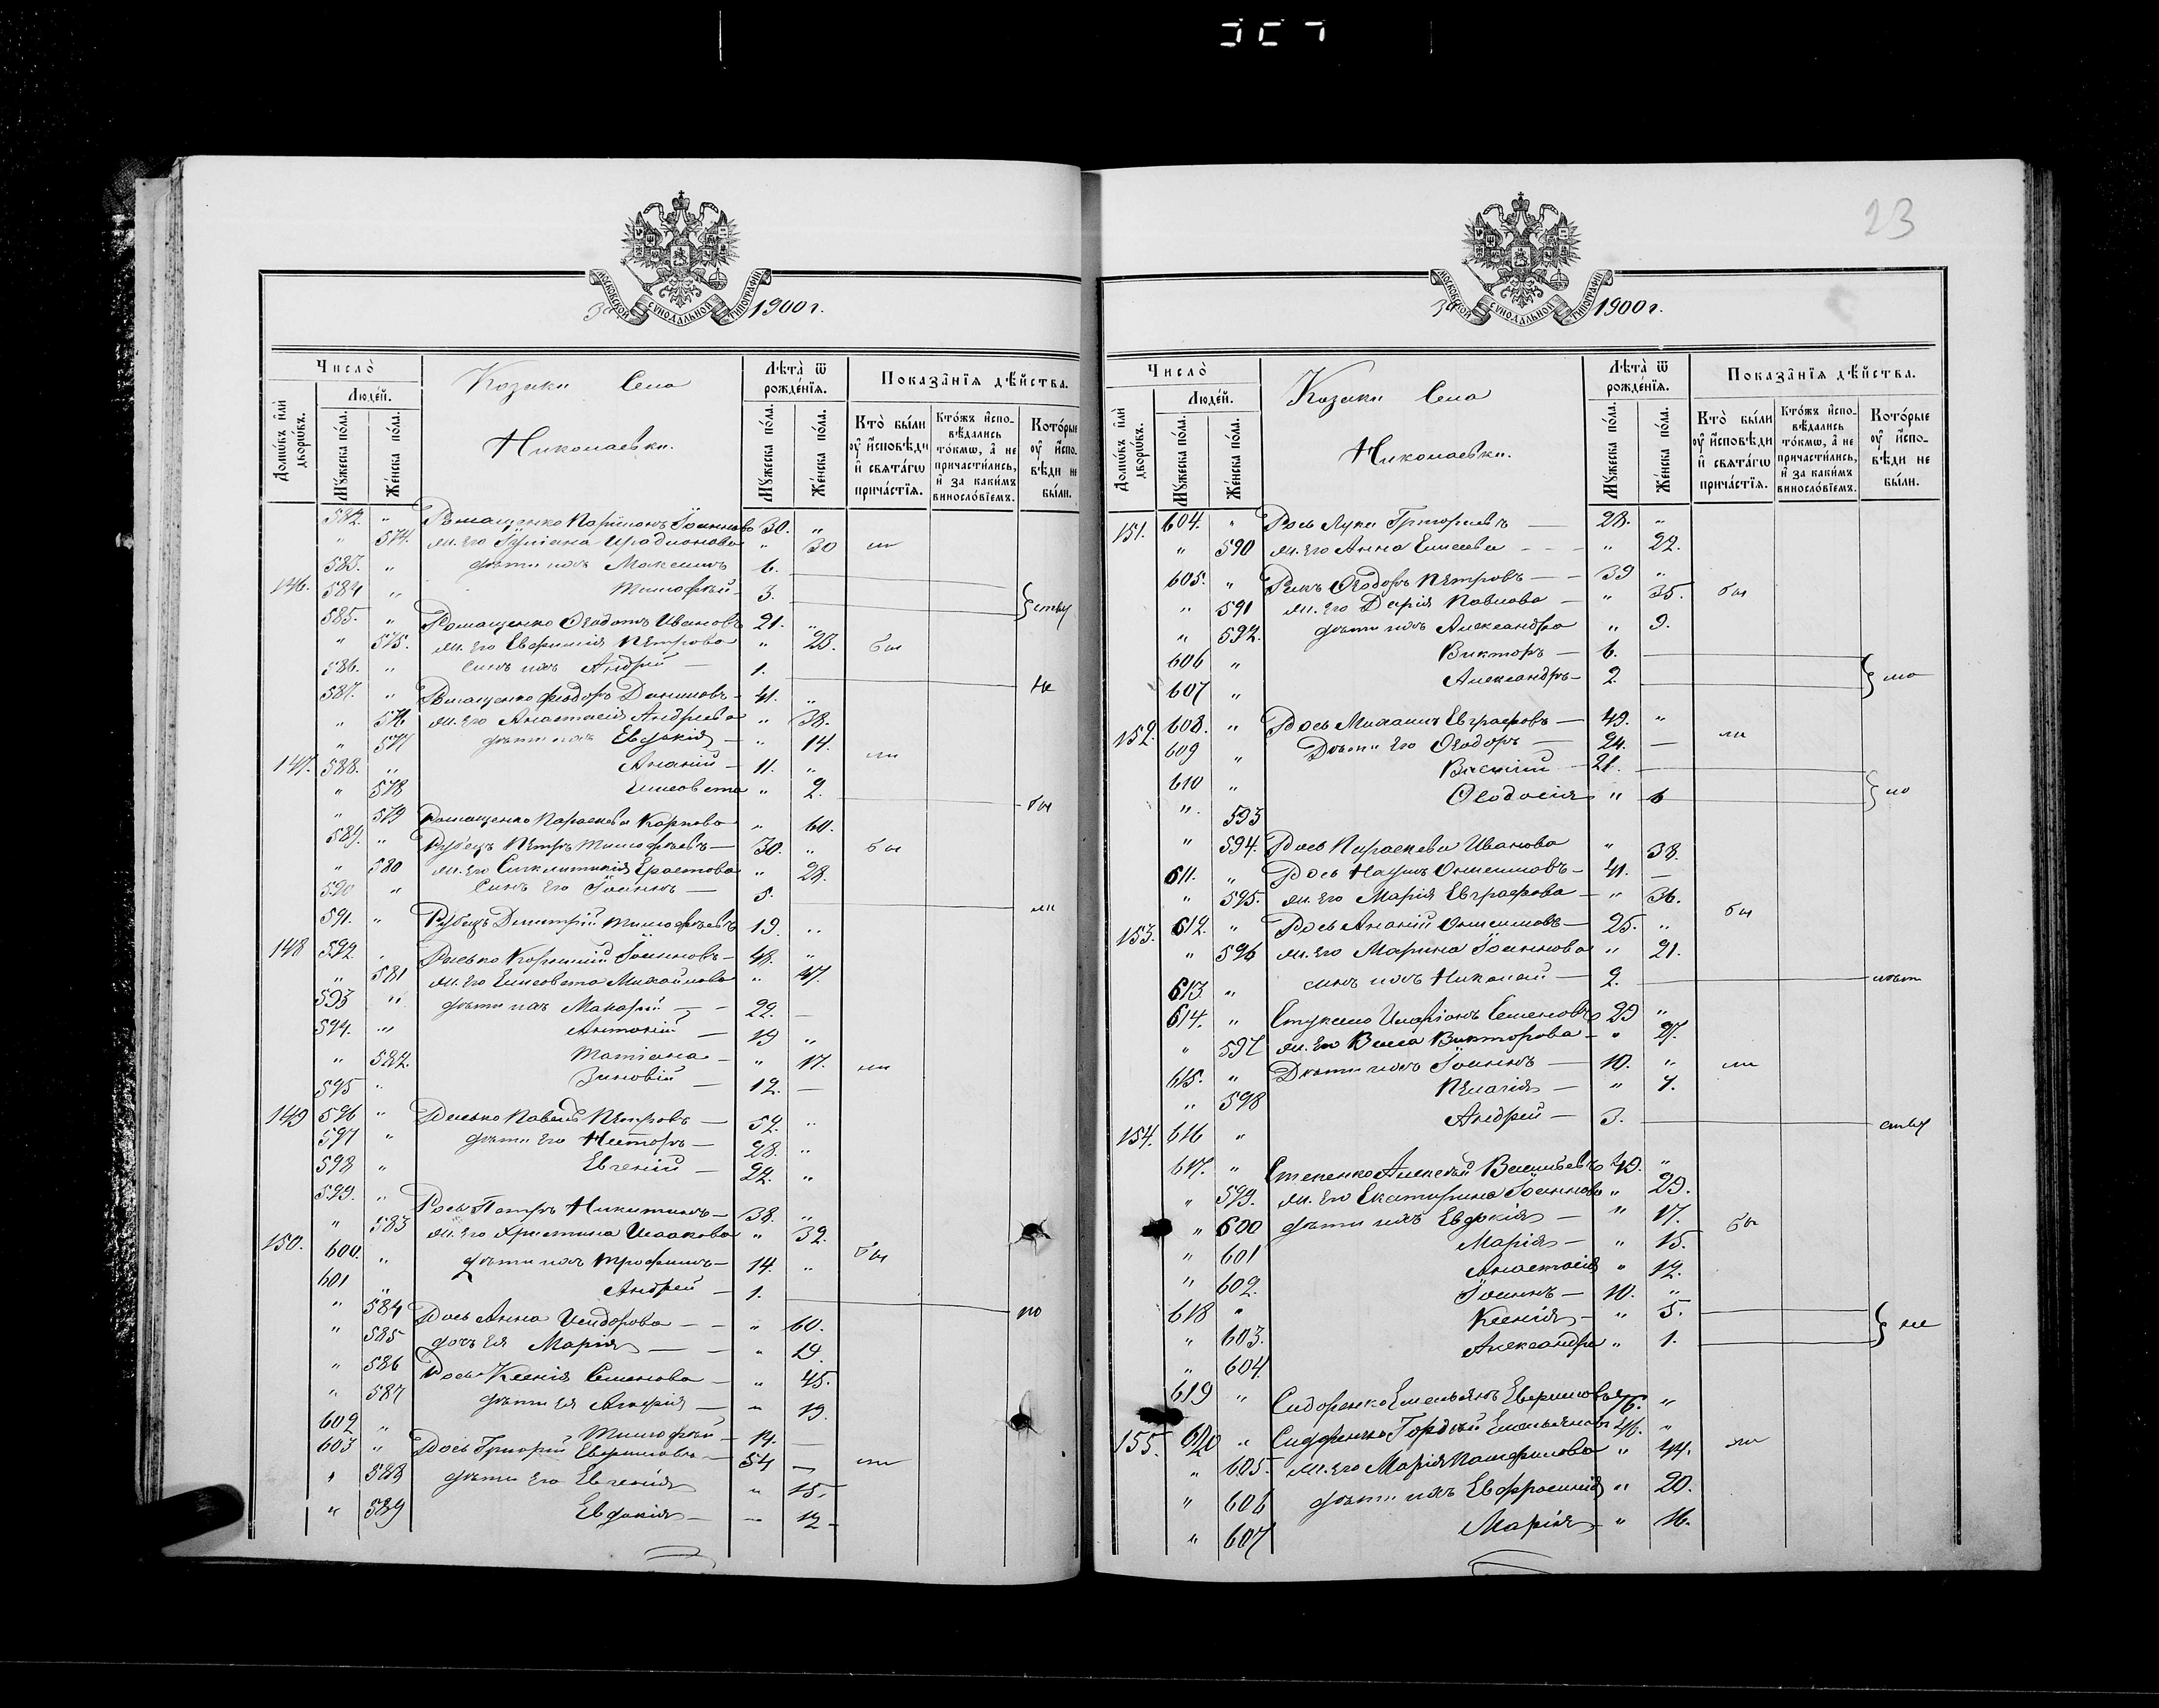 23
МОСКОВСКОЙ СУНОДАЛЬНОЙ ТИПОГРАФІИ
За 1900 г.
Число̀
Люде́й.
Домѡ́въ и҆лѝ дворѡ́въ.
Мꙋ́жеска по́ла.
Же́нска по́ла.
Козаки Села
Николаевки.
Лѣта̀ ѿ рожде́нїѧ.
Мꙋ́жеска по́ла.
Же́нска по́ла.
Показа̑нїѧ дѣ́йства.
Кто̀ бы́ли
ᲂу҆ и҆́сповѣди
и҆ свѧта́гѡ
прича́стїѧ.
Кто́жъ и҆спо-
вѣ́дались
то́кмѡ, а҆ не
причасти́лись,
и҆ за каки́мъ
винослόвїемъ.
Кото́рые
ᲂу҆ и҆́спо-
вѣди не
бы́ли.
582. " Ромащенко Іоанновъ 30. "
" 574. ж. его Іуліана Иродионова " 30 ли
583. " дѣти ихъ Максимъ 6.
146. 584 " Тимофѣй 3.
585. " Ромащенко Ѳеодотъ Ивановъ 21. "
" 575. ж. его Евфимія Петрова " 23. бы
586. " сынъ ихъ Андрей 1. не
587. " Ромащенко Феодоръ Даниловъ 41. "
" 576 ж. его Анастасія Андреева " 38.
" 577 дѣти ихъ Евдокія " 14. ли
147. 588. " Ананій 11. "
" 578 Елисавета " 2. бы
" 579 Ромащенко Параскева Карпова " 60.
589. " Рубецъ Петръ Тимофѣевъ 30. " бы
" 580 ж. его Синклитикія Ерастова " 28.
590 " Сынъ его Іоаннъ 5. ли
591. " Рубецъ Димитрій Тимофѣевъ 19. "
148 592 Корнилій Іоанновъ 48. "
" 581 ж. его Елисавета Михайлова " 47.
593 " дѣти ихъ Макарій 22. —
594. " Антоній 19 "
" 582. Татіана " 17. ли
595 " Зиновій 12. —
149 596 " Павелъ Петровъ 52. "
597 " дѣти его Несторъ 28. "
598 " Евгеній 22. "
599. " Рось Петръ Никитинъ 38. "
" 583 ж. его Христина Исаакова " 32.
150. 600. " дѣти ихъ Трофимъ 14. " бы
601 " Андрей 1. но
" 584 Рось Анна Исидорова " 60.
" 585 дочь ея Марія " 19.
" 586 Рось Ксенія Семенова " 45.
" 587 дѣти ея " 19.
602 " Тимофѣй 14. —
603 " Рось Григорій Евфимовъ 54 — ли
" 588 дѣти его Евгенія " 15.
" 589 Евдокія — 12
МОСКОВСКОЙ СУНОДАЛЬНОЙ ТИПОГРАФІИ
За 1900 г.
Число̀
Люде́й.
Домѡ́въ и҆лѝ дворѡ́въ.
Мꙋ́жеска по́ла.
Же́нска по́ла.
Козаки Села
Николаевки.
Лѣта̀ ѿ рожде́нїѧ.
Мꙋ́жеска по́ла.
Же́нска по́ла.
Показа̑нїѧ дѣ́йства.
Кто̀ бы́ли
ᲂу҆ и҆́сповѣди
и҆ свѧта́гѡ
прича́стїѧ.
Кто́жъ и҆спо-
вѣ́дались
то́кмѡ, а҆ не
причасти́лись,
и҆ за каки́мъ
винослόвїемъ.
Кото́рые
ᲂу҆ и҆́спо-
вѣди не
бы́ли.
151. 604. " Рось Лука Григорьевъ 28. "
" 590 ж. его Анна Елисеева " 22.
605. " Ѳеодоръ Петровъ 39 "
" 591 ж. его Дарія Павлова " 35. бы
" 592. дѣти ихъ Александра " 9.
606 " Викторъ 6.
607 " Александръ 2
152. 608. " Рось Михаилъ Евграфовъ 49. "
609 " Дѣти его Ѳеодоръ 24. — ли
610 " Василій 21.
" 593 Ѳеодосія " 6
" 594. Рось Параскева Иванова " 38.
611. " Рось Наумъ Онисимовъ 41. —
" 595. ж. его Марія Евграфова " 36.
153. 612. " Рось Ананій Онисимовъ 25. " бы
" 596 ж. его Марина Іоаннова " 21.
613. " сынъ ихъ Николай 2.
614. " Иларіонъ Семеновъ 29 "
" 597 ж. его Васса Викторова " 27.
615. " Дѣти ихъ Іоаннъ 10. " ли
" 598 Пелагія " 7.
154. 616 " Андрей 3.
617. " Степенко Алексѣй Васильевъ 40. "
" 599. ж. его Екатерина Іоаннова " 39.
" 600 дѣти ихъ Евдокія " 17. бы
" 601 Марія " 15.
" 602. Анастасія " 12.
618 " Іоаннъ 10. "
" 603. Ксенія " 5.
" 604. Александра " 1. не
619 " Сидоренко Емельянъ Евфимовъ 76. "
155. 620 " Сидоренко Гордѣй Емельяновъ 46. "
" 605. ж. его Марія Памфилова " 44. ли
" 606 дѣти ихъ Евфросинія " 20.
" 607 Марія " 16.